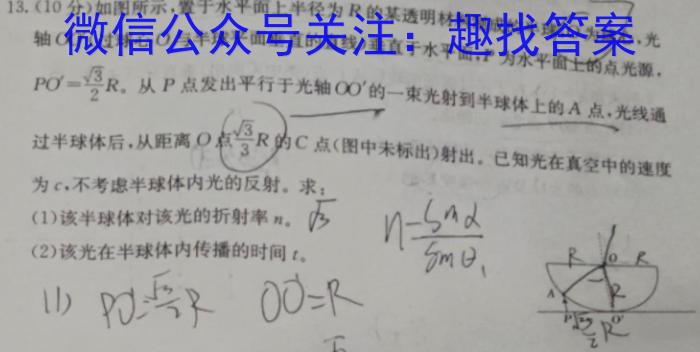 13.(10分)如图所示,置于水平面上半径为R的某透明材
微信公众号关注:趣找答案
为水平面上的点光源,
PO′=√3/2 R。从P点发出平行于光轴OO′的一束光射到半球体上的A点,光线通
过半球体后,从距离O点√3/3 R的C点(图中未标出)射出。已知光在真空中的速度
为c,不考虑半球体内光的反射。求:
(1)该半球体对该光的折射率n。 √3
n=Sinα/Sinθ₁
(2)该光在半球体内传播的时间t。
(1) PO′=√3/2 R OO′=R
R O R
A R
P √3/2 R O′